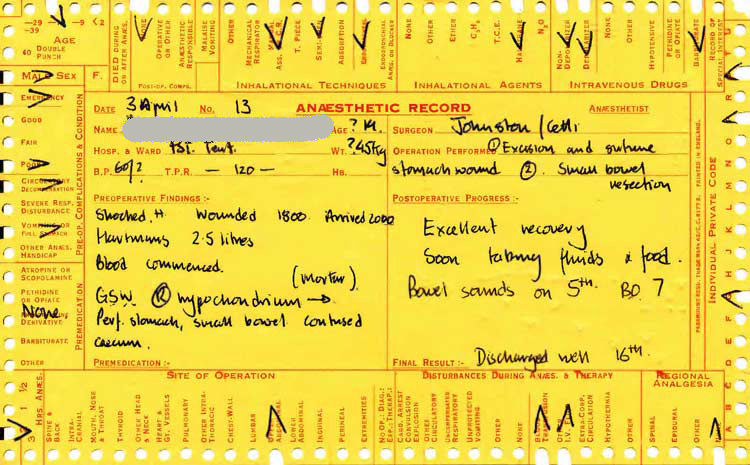 –29
–39
–9 <2
AGE
60 DOUBLE PUNCH
DIED DURING OR AFTER ANÆS.
NONE
OPERATIVE OR OTHER
ANÆSTHETIC RESPONSIBLE
MALAISE VOMITING
OTHER
POST-OP. COMPS.
MECHANICAL RESPIRATOR
T. PIECE
ABSORPTION
ENDOBRONCHIAL ANÆS. OR BLOCKER
INHALATIONAL TECHNIQUES
NONE
OTHER
ETHER
C₃H₆
T.C.E.
HALOTHANE
N₂O
INHALATIONAL AGENTS
NON-DEPOLARIZER
DEPOLARIZER
NONE
OTHER
HYPOTENSIVE
PETHIDINE OR OPIATE
BARBITURATE
INTRAVENOUS DRUGS
RECORD OF SPECIAL INTEREST
MALE SEX F.
EMERGENCY
GOOD
FAIR
POOR
CIRCULATORY DECOMPENSATION
SEVERE RESP. DISTURBANCE
VOMITING OR FULL STOMACH
OTHER ANÆS. HANDICAP
PRE-OP. COMPLICATIONS & CONDITION
ATROPINE OR SCOPOLAMINE
PETHIDINE OR OPIATE
None
DERIVATIVE
BARBITURATE
OTHER
PREMEDICATION
DATE 3 April No. 13 ANÆSTHETIC RECORD ANÆSTHETIST
NAME AGE ? 19. SURGEON Johnston/
HOSP. & WARD 1st. Tent. WT. ?45Kg OPERATION PERFORMED ① Excision and suture
B.P. 60/? T.P.R. — 120 — HB. stomach wound ② Small bowel
resection
PREOPERATIVE FINDINGS :-
Shocked ++ Wounded 1800. Arrived 2000
Hartmans 2.5 litres
Blood commenced.
(mortar)
GSW. Ⓡ hypochondrium →
Perf. stomach, small bowel contused
caecum.
PREMEDICATION :-
POSTOPERATIVE PROGRESS :-
Excellent recovery
Soon taking fluids & food.
Bowel sounds on 5th. BO. 7
FINAL RESULT :- Discharged well 16th.
INDIVIDUAL PRIVATE CODE
PRINTED IN ENGLAND.
3 1 ½
HRS. ANÆS.
SITE OF OPERATION
SPINE & BACK
INTRA-CRANIAL
MOUTH, NOSE & THROAT
THYROID
OTHER HEAD & NECK
HEART & GT. VESSELS
PULMONARY
OTHER INTRA-THORACIC
CHEST-WALL
LUMBAR
UPPER ABDOMINAL
LOWER ABDOMINAL
INGUINAL
PERINEAL
EXTREMITIES
NO OP.: DIAG.: EXP.: THERAP.:
DISTURBANCES DURING ANÆS. & THERAPY
CARD. ARREST CONVULSION EXPLOSION
OTHER CIRCULATORY
UNCOMPENSATED RESPIRATORY
UNPROTECTED VOMITING
OTHER
NONE
TRANSFUSION
EXTRA-CORP. CIRCULATION
HYPOTHERMIA
OTHER
REGIONAL ANALGESIA
SPINAL
EPIDURAL
OTHER